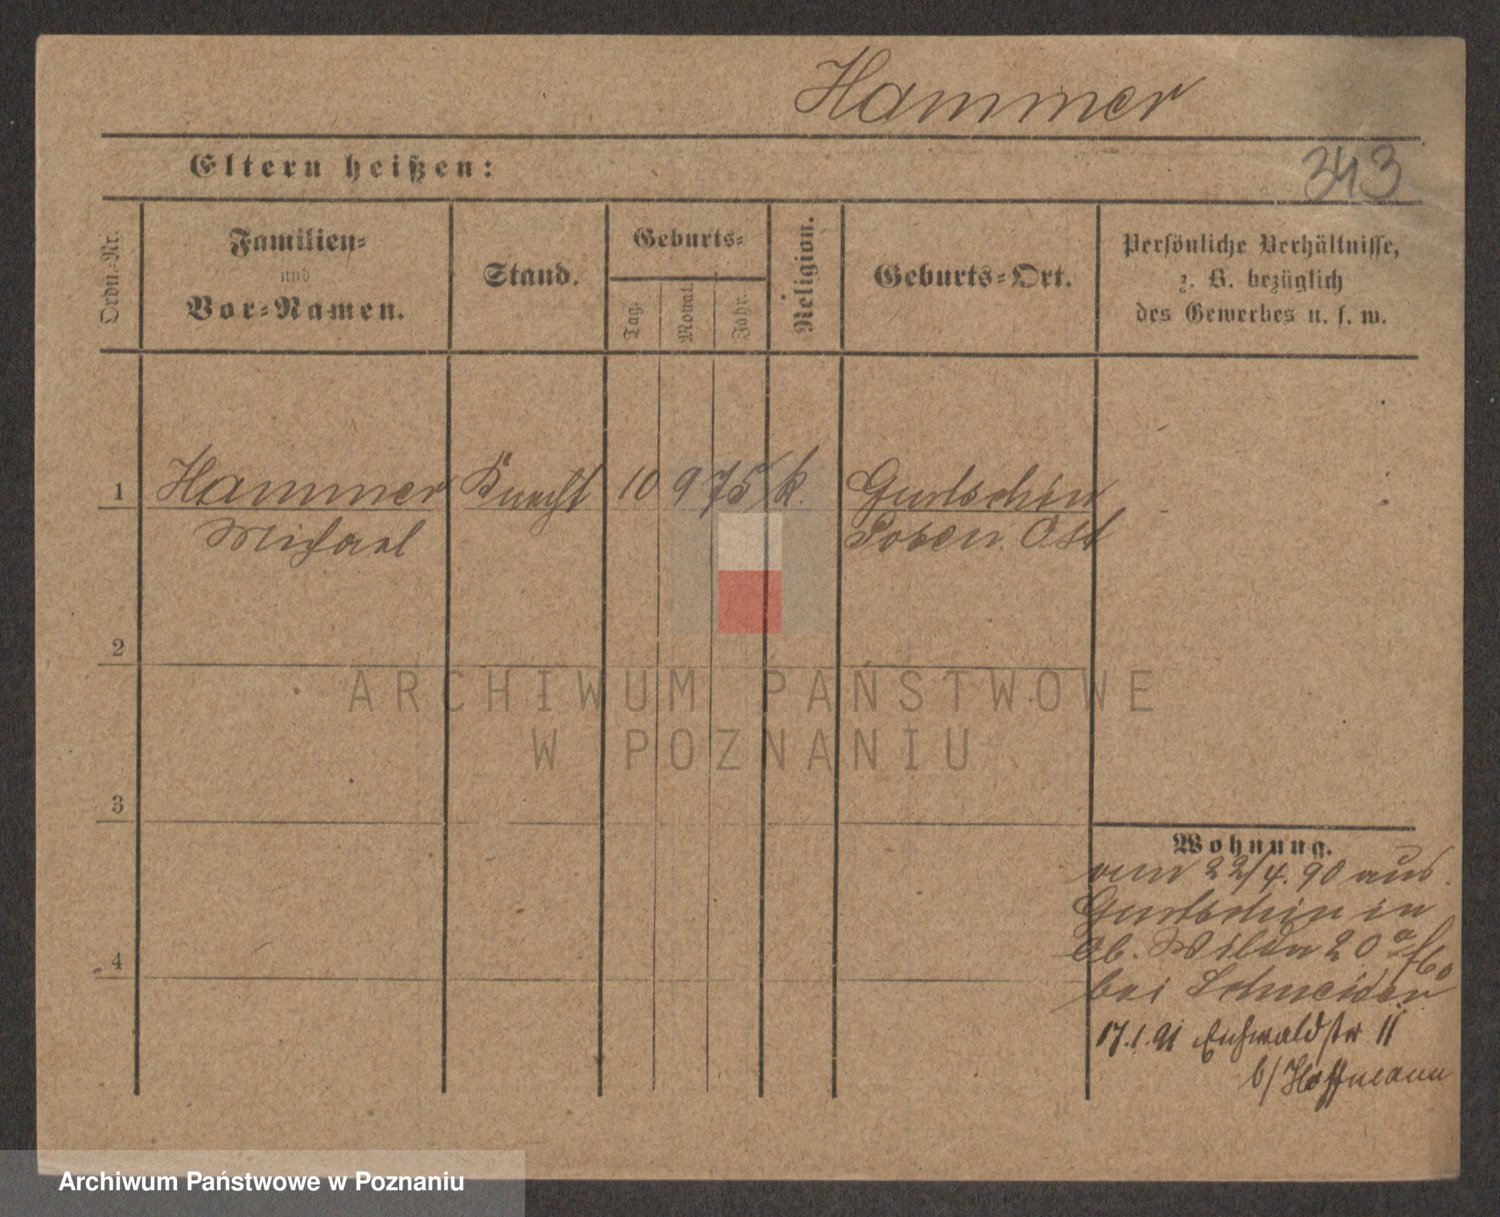 Hammer
343
Eltern heißen:
Ordn.-Nr.
Familien-
und
Vor-Namen.
Stand.
Geburts-
Tag.
Monat.
Jahr.
Religion.
Geburts-Ort.
Persönliche Verhältnisse,
z. B. bezüglich
des Gewerbes u. s. w.
1 Hammer Knecht 10 9 75 k. Gurtschin
Michael Posen. Ost
2
3
4
Wohnung.
22/4. 90 aus
Gurtschin in
Ob. Wilda 20a
bei Schneider
17.1.91 Eichwaldstr 11
b/Hoffmann
ARCHIWUM PAŃSTWOWE
W POZNANIU
Archiwum Państwowe w Poznaniu